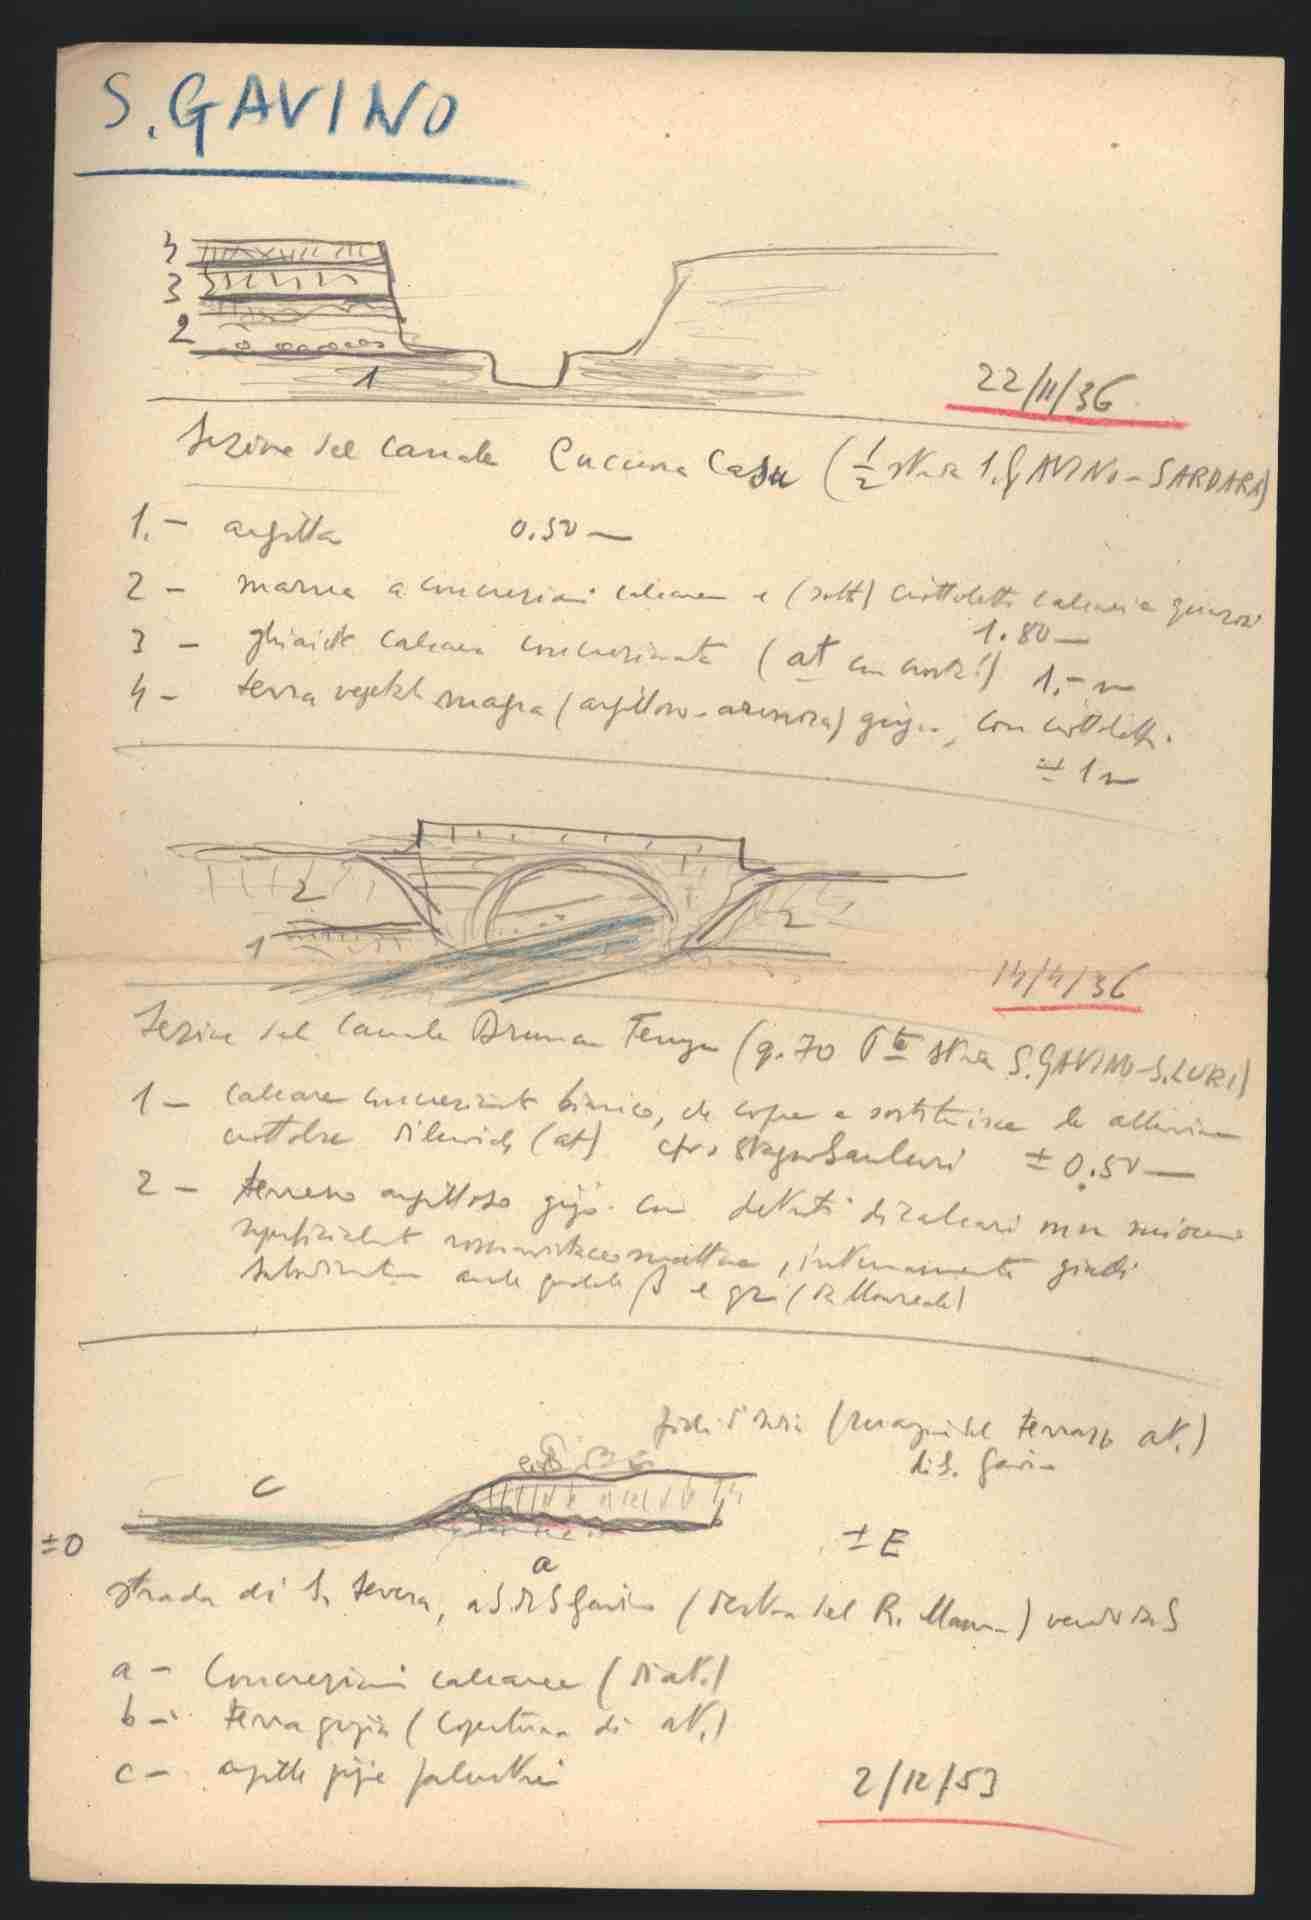 S. GAVINO
4
3
2
1
22/11/36
Sezione del Canale Cuccuru Casu (1/2 strada S. GAVINO - SARDARA)
1. - argilla 0.50 m
2 - marna a concrezioni calcaree e (sotto) ciottoletti calcarei e quarzosi
1.80 m
3 - ghiaietto calcareo concrezionato (at con crosta!) 1,- m
4 - terra vegetale magra (argilloso-arenosa) grigia, con ciottoletti.
± 1 m
2
1
2
14/4/36
Sezione del Canale Bruncu Fenugu (q. 70 strada S. GAVINO - S.LURI)
1 - calcare concrezionato bianco, che copre e sostituisce le alluvioni
ciottolose diluviali (at) cfr. Sanluri ± 0.50 m
2 - terreno argilloso grigio con detriti di calcari
superficialmente, internamente gialli
anche β e gr (di Monreale)
c
(margini del terrazzo at.)
di S. Gavino
b
±O
±E
a
strada di S. Severa, a S. di S Gavino (destra del R. Mannu) da S
a - Concrezioni calcaree (di at.)
b - terra grigia (copertura di at.)
c - argille grigie palustri
2/12/53